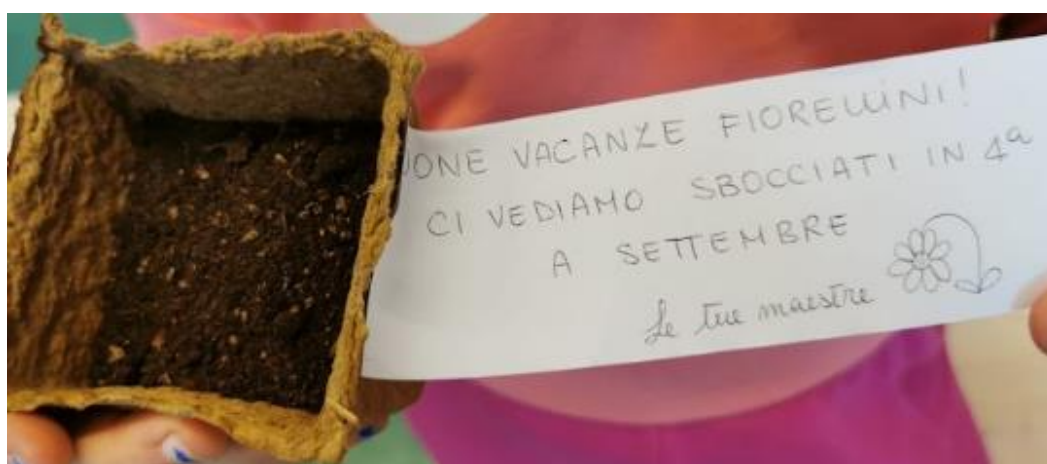 UONE VACANZE FIORELLINI!
CI VEDIAMO SBOCCIATI IN 4ª
A SETTEMBRE
Le tue maestre